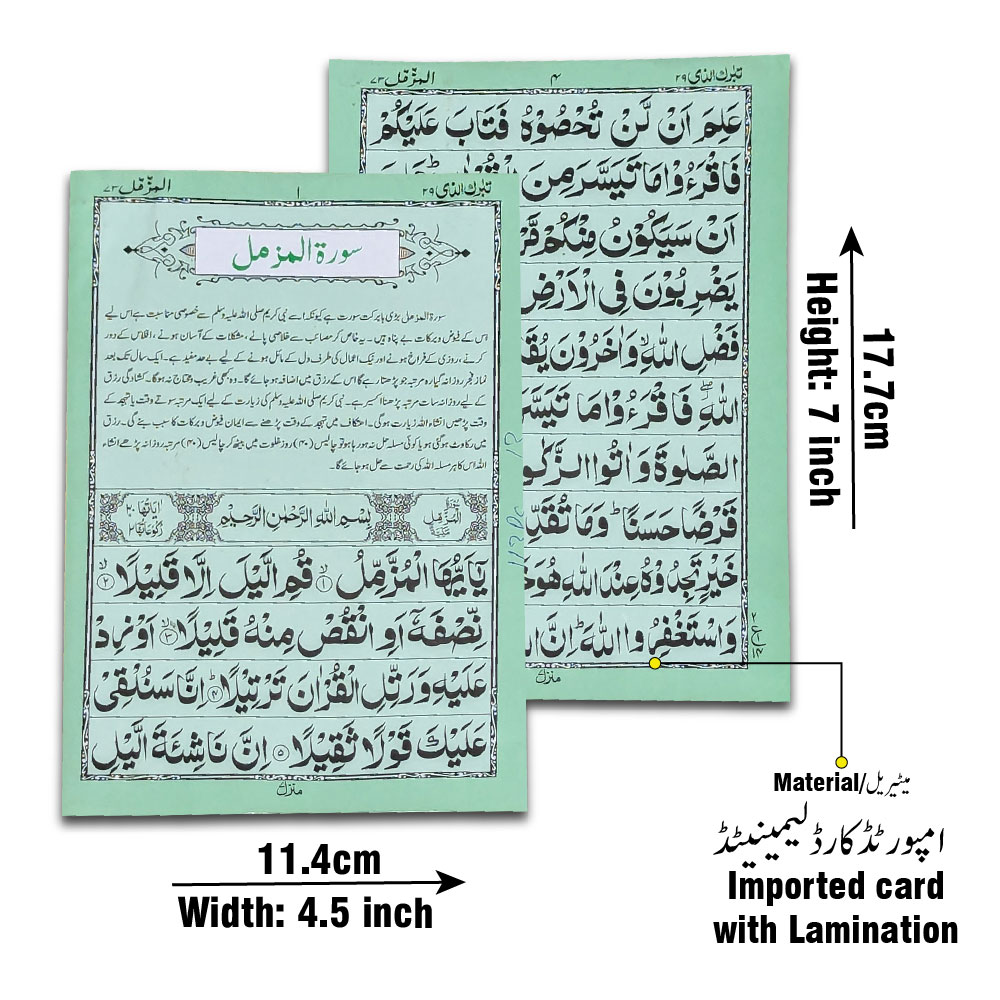 تبرك الذى ٢٩
۴
المزمل ٧٣
عَلِمَ اَنْ لَّنْ تُحْصُوْهُ فَتَابَ عَلَيْكُمْ
فَاقْرَءُوْا مَا تَيَسَّرَ مِنَ
اَنْ سَيَكُوْنُ مِنْكُمْ
يَضْرِبُوْنَ فِى الْاَرْضِ
فَضْلِ اللّٰهِ ۙ وَاٰخَرُوْنَ
اللّٰهِ ۖ فَاقْرَءُوْا مَا تَيَسَّرَ
الصَّلٰوةَ وَاٰتُوا
قَرْضًا حَسَنًا ؕ وَمَا
خَيْرٍ تَجِدُوْهُ عِنْدَ اللّٰهِ
وَاسْتَغْفِرُوا اللّٰهَ ؕ اِنَّ
منزل
تبرك الذى ٢٩
١
المزمل ٧٣
سورۃ المزمل
سورۃ المزمل بڑی بابرکت سورت ہے کیونکہ اسے نبی کریم صلی اللہ علیہ وسلم سے خصوصی مناسبت ہے اس لیے
اس کے فیوض و برکات بے پناہ ہیں۔ یہ خاص کر مصائب سے خلاصی پانے، مشکلات کے آسان ہونے، افلاس کے دور
کرنے، روزی کے فراخ ہونے اور نیک اعمال کی طرف دل کے مائل ہونے کے لیے بے حد مفید ہے۔ ایک سال تک بعد
نماز فجر روزانہ گیارہ مرتبہ جو پڑھتا رہے گا اس کے رزق میں اضافہ ہو جائے گا۔ وہ کبھی غریب و محتاج نہ ہوگا۔ کشادگی رزق
کے لیے روزانہ سات مرتبہ پڑھنا اکسیر ہے۔ نبی کریم صلی اللہ علیہ وسلم کی زیارت کے لیے ایک مرتبہ سوتے وقت یا تہجد کے
وقت پڑھیں انشاء اللہ زیارت ہوگی۔ اعتکاف میں تہجد کے وقت پڑھنے سے ایمان فیوض و برکات کا سبب بنے گی۔ رزق
میں رکاوٹ ہوگئی ہو یا کوئی مسئلہ حل نہ ہو رہا ہو تو چالیس (۴۰) روز خلوت میں بیٹھ کر چالیس (۴۰) مرتبہ روزانہ پڑھے انشاء
اللہ اس کا ہر مسئلہ اللہ کی رحمت سے حل ہو جائے گا۔
سورۃ المزمل مکیۃ
بِسْمِ اللّٰهِ الرَّحْمٰنِ الرَّحِيْمِ
اٰیاتها ٢٠ رکوعاتها ٢
يٰۤاَيُّهَا الْمُزَّمِّلُ ۙ﴿١﴾ قُمِ الَّيْلَ اِلَّا قَلِيْلًا ۙ﴿٢﴾
نِّصْفَهٗۤ اَوِ انْقُصْ مِنْهُ قَلِيْلًا ۙ﴿٣﴾ اَوْ زِدْ
عَلَيْهِ وَرَتِّلِ الْقُرْاٰنَ تَرْتِيْلًا ؕ﴿٤﴾ اِنَّا سَنُلْقِىْ
عَلَيْكَ قَوْلًا ثَقِيْلًا ﴿٥﴾ اِنَّ نَاشِئَةَ الَّيْلِ
منزل
17.7cm
Height: 7 inch
11.4cm
Width: 4.5 inch
Material/میٹیریل
امپورٹڈ کارڈ لیمینیٹڈ
Imported card
with Lamination